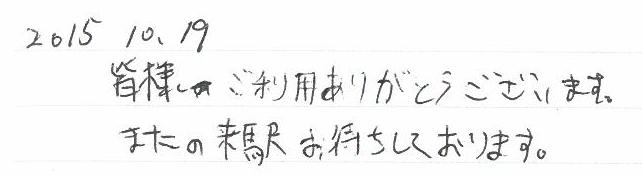 2015 10.19
皆様のご利用ありがとうございます。
またの来駅お待ちしております。